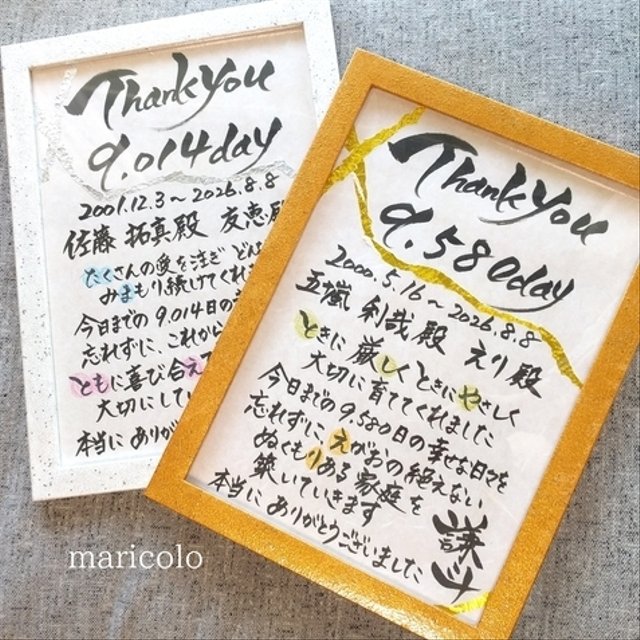 Thank you
9.014day
2001.12.3～2026.8.8
佐藤 拓真殿 友恵殿
たくさんの愛を注ぎ
みまもり続けてくれ
今日までの9.014日の
忘れずに、これから
ともに喜び合え
大切にしてい
本当に ありが
Thank you
9.580day
2000.5.16～2026.8.8
五嵐 利哉殿 えり殿
ときに厳しくときにやさしく
大切に育ててくれました
今日までの9.580日の幸せな日々を
忘れずに えがおの絶えない
ぬくもりある家庭を
築いていきます
本当に ありがとうございました
謙斗
maricolo